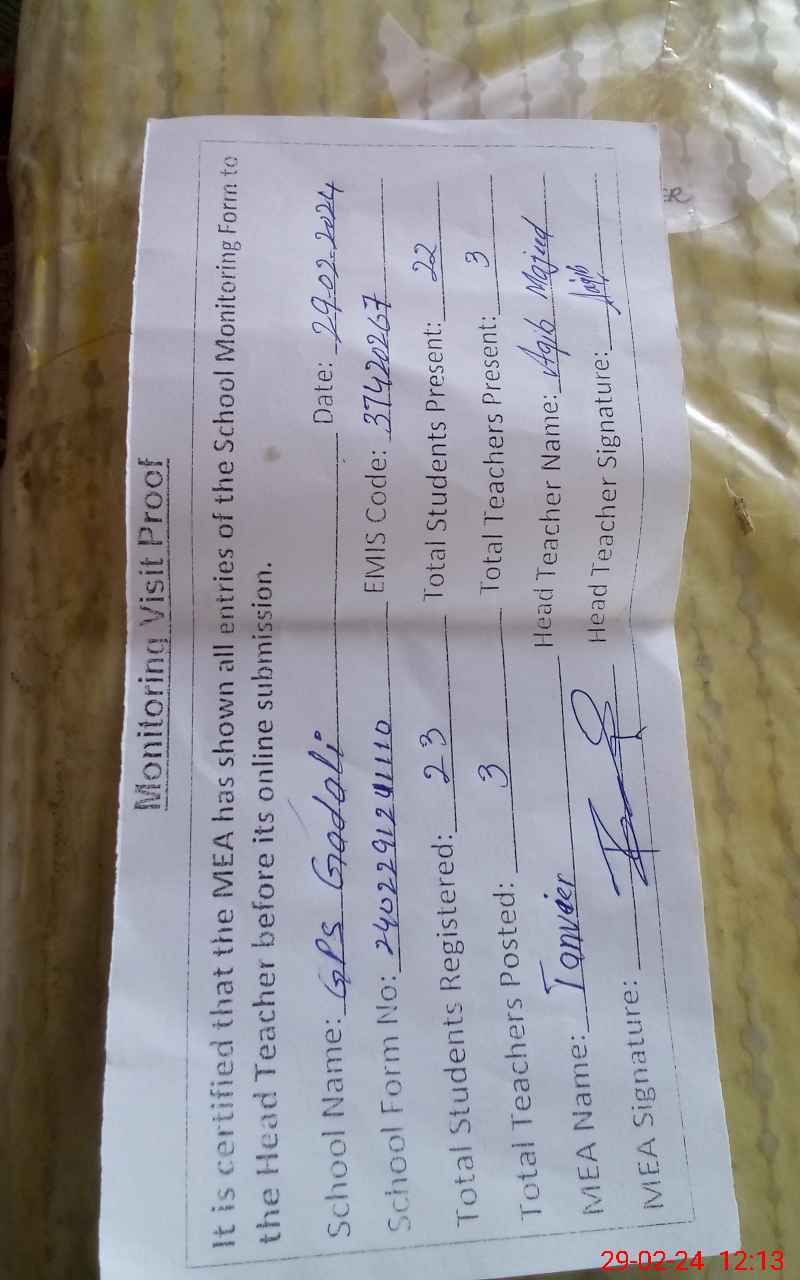 Monitoring Visit Proof
It is certified that the MEA has shown all entries of the School Monitoring Form to
the Head Teacher before its online submission.
School Name: GPS Gadali Date: 29-02-2024
School Form No: 2402291241110 EMIS Code: 37420267
Total Students Registered: 23 Total Students Present: 22
Total Teachers Posted: 3 Total Teachers Present: 3
MEA Name: Tanveer Head Teacher Name: Aqib Majud
MEA Signature: Head Teacher Signature: Aqib
ER
29-02-24 12:13